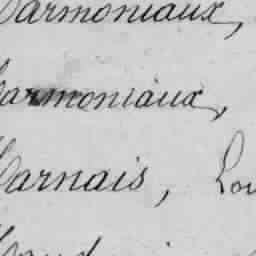 armoniaux,
armoniaux,
arnais, Lou